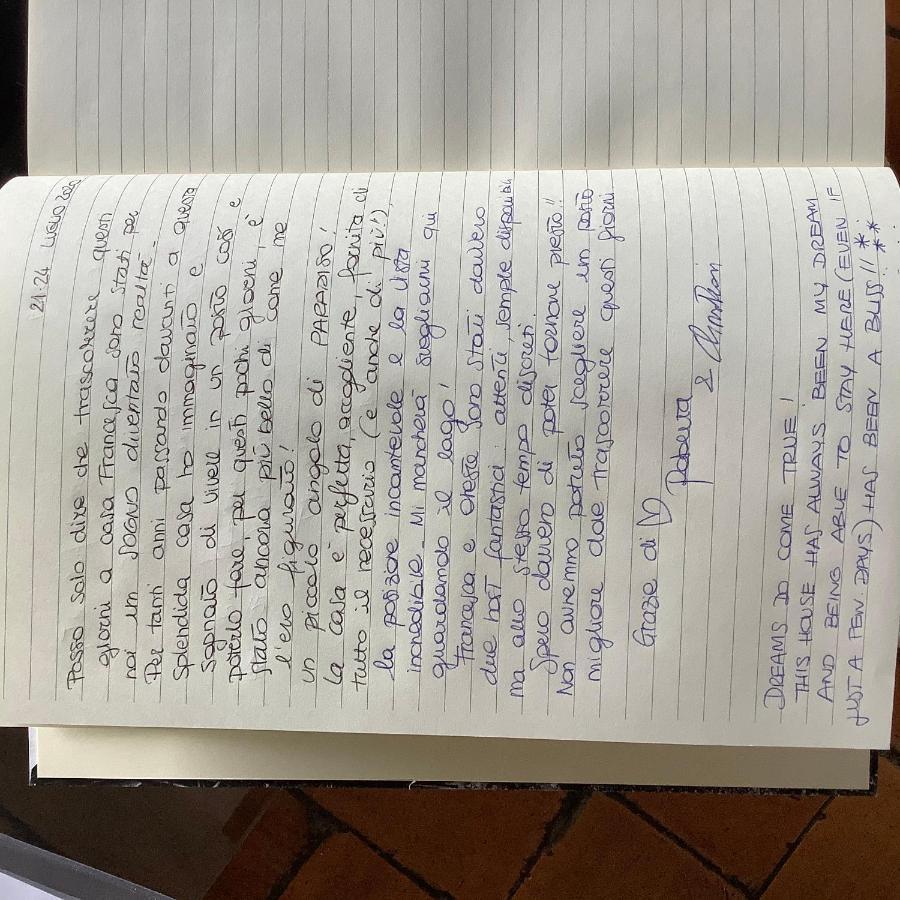 21-24 LUGLIO 2020
Posso solo dire che trascorrere questi
giorni a casa Francesca sono stati per
noi un SOGNO diventato realtà.
Per tanti anni passando davanti a questa
splendida casa ho immaginato e
sognato di vivere in un posto così e
poterlo fare, per questi pochi giorni, è
stato ancora più bello di come me
l'ero figurato!
un piccolo angolo di PARADISO!
La casa è perfetta, accogliente, fornita di
tutto il necessario (e anche di più!),
la posizione incantevole e la vista
incredibile. Mi mancherà svegliarmi qui
guardando il lago!
Francesca e Oreste sono stati davvero
due host fantastici: attenti, sempre disponibili
ma allo stesso tempo discreti.
Spero davvero di poter tornare presto!!
Non avremmo potuto scegliere un posto
migliore dove trascorrere questi giorni.
Grazie di ♡
Roberta
&
DREAMS DO COME TRUE!
THIS HOUSE HAS ALWAYS BEEN MY DREAM
AND BEING ABLE TO STAY HERE (EVEN IF
JUST A FEW DAYS) HAS BEEN A BLISS!!